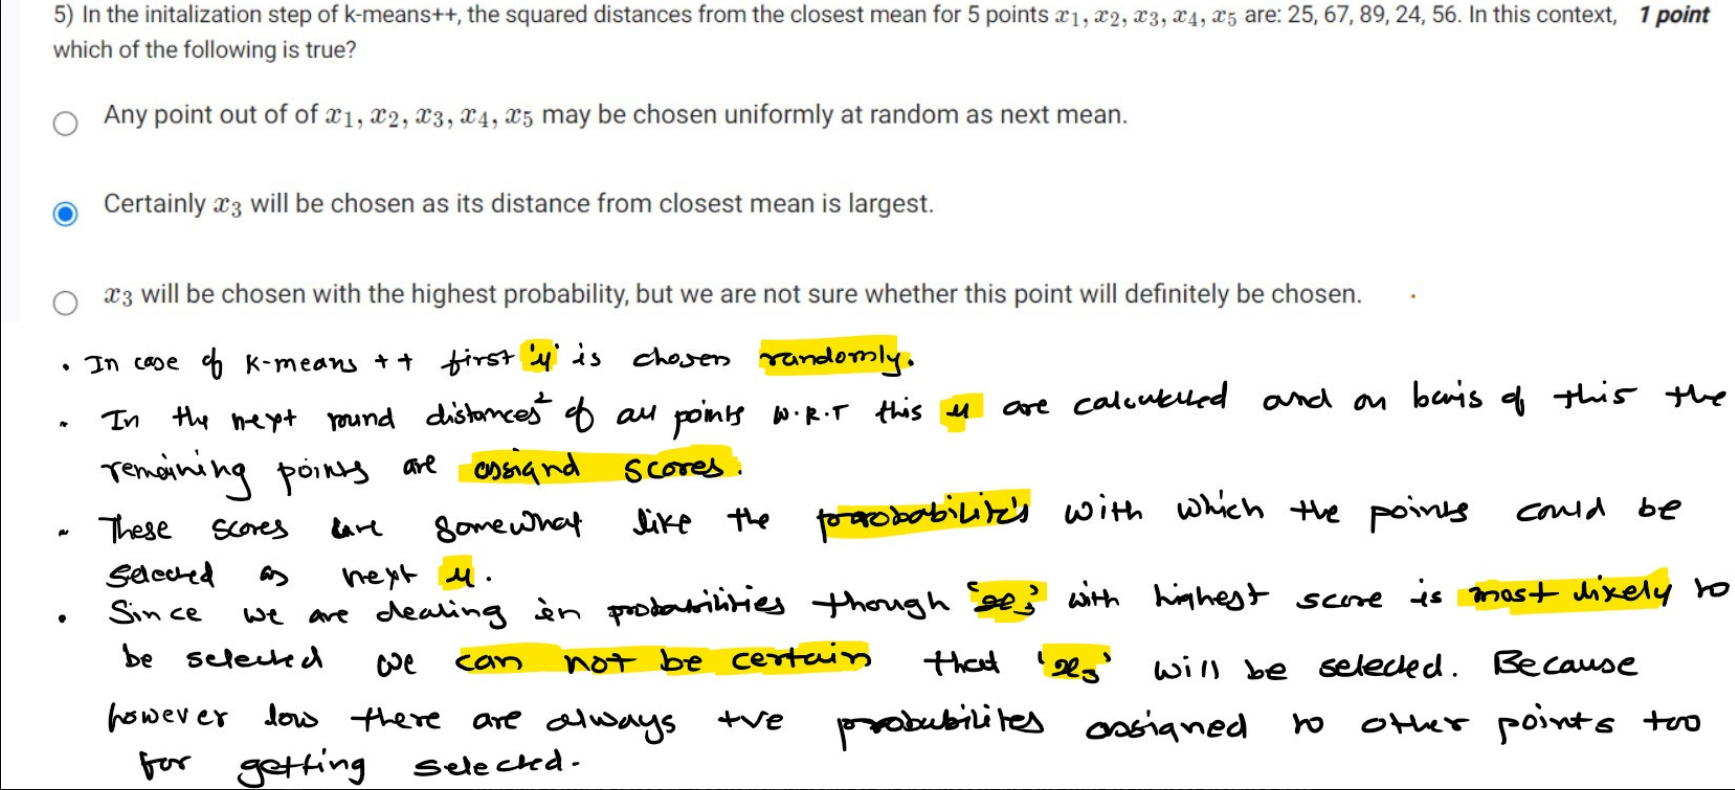 5) In the initalization step of k-means++, the squared distances from the closest mean for 5 points x₁, x₂, x₃, x₄, x₅ are: 25, 67, 89, 24, 56. In this context, 1 point
which of the following is true?
Any point out of of x₁, x₂, x₃, x₄, x₅ may be chosen uniformly at random as next mean.
Certainly x₃ will be chosen as its distance from closest mean is largest.
x₃ will be chosen with the highest probability, but we are not sure whether this point will definitely be chosen.
• In case of k-means ++ first 'μ' is chosen randomly.
• In the next round distances² of all points w.R.T this μ are calculated and on basis of this the
remaining points are assignd scores.
• These scores are somewhat like the probabilites with which the points could be
selected as next μ.
• Since we are dealing in probabilities though 'x₃' with highest score is most likely to
be selected we can not be certain that 'x₃' will be selected. Because
however low there are always +ve probabilites assigned to other points too
for getting selected.